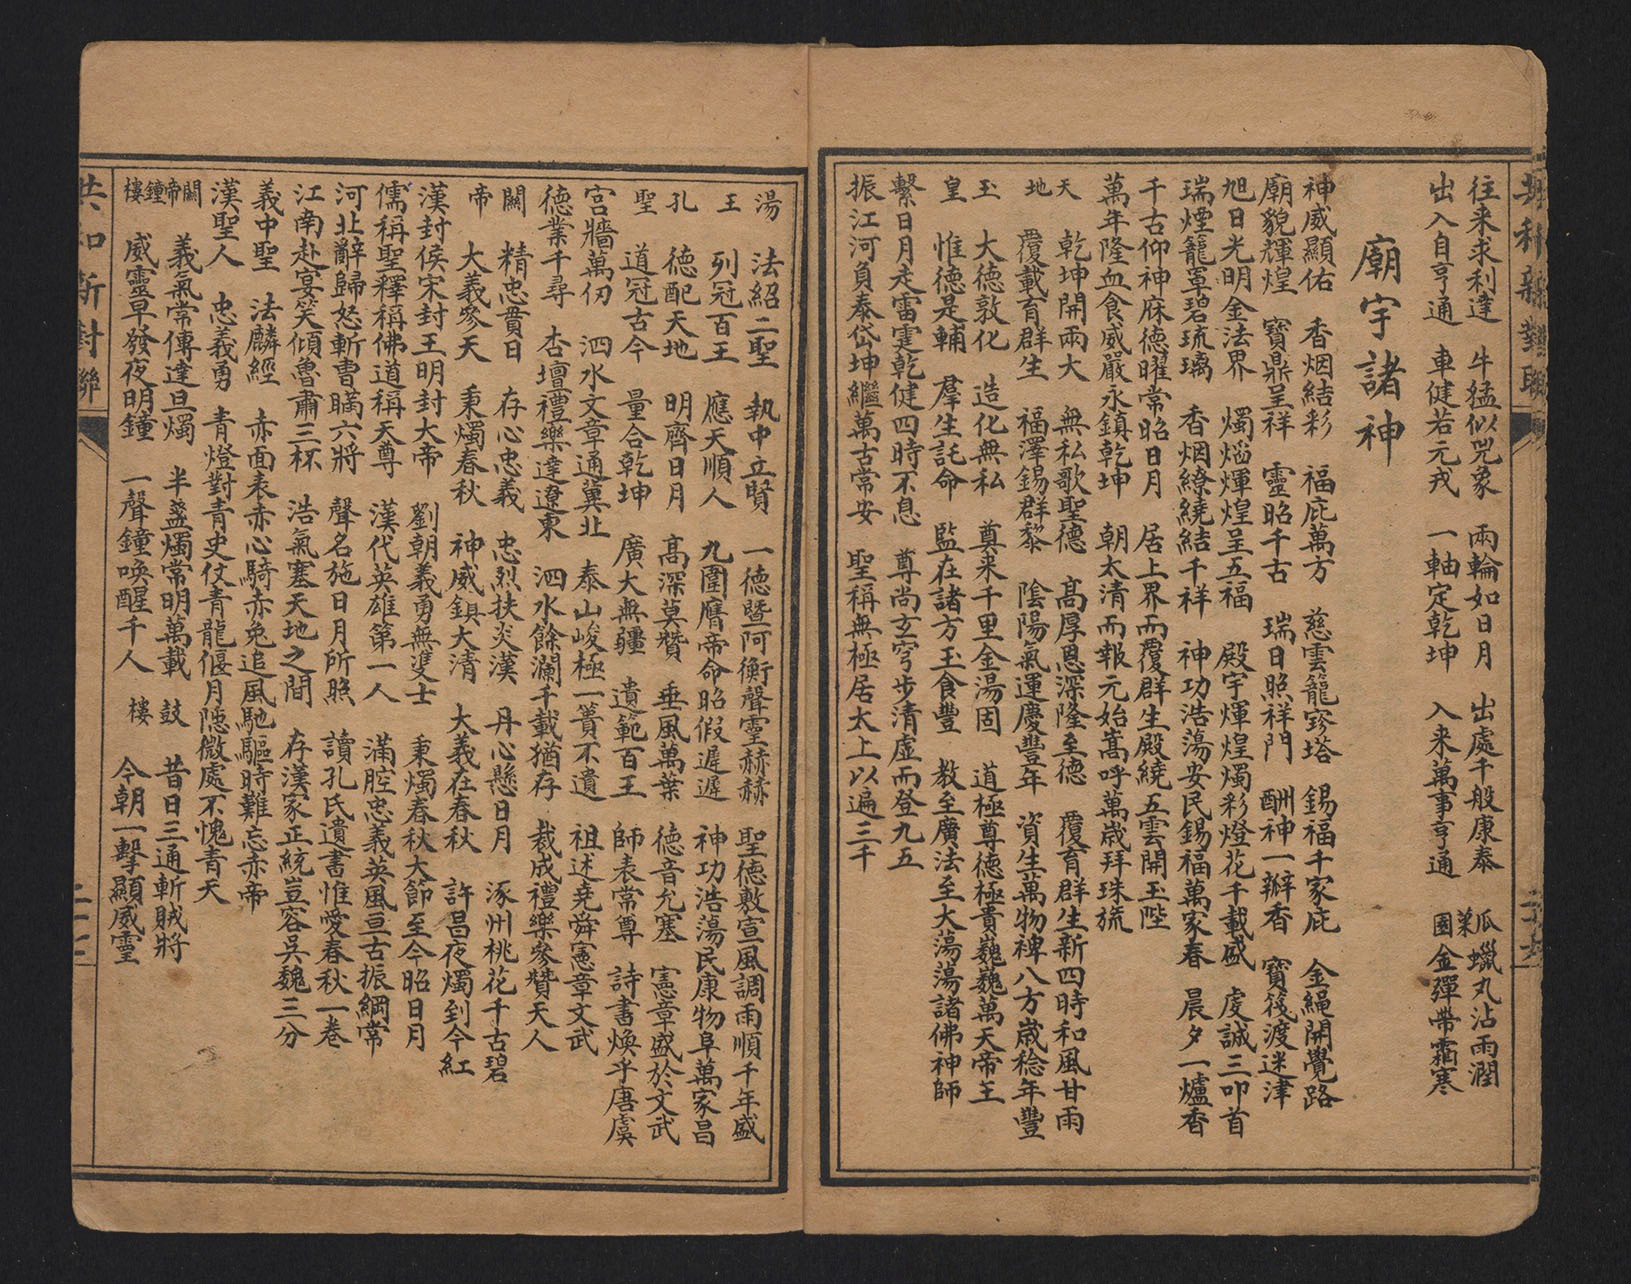 往来求利達 牛猛似兕象 兩輪如日月 出處千般康泰 瓜菓 蠟丸沾雨潤
出入自亨通 車健若元戎 一軸定乾坤 入来萬事亨通 園 金彈帶霜寒
廟宇諸神
神威顯佑 香烟結彩 福庇萬方 慈雲籠寶塔 錫福千家庇 金繩開覺路
廟貌輝煌 寶鼎呈祥 靈昭千古 瑞日照祥門 酬神一瓣香 寶筏渡迷津
旭日光明金法界 燭熖煇煌呈五福 殿宇煇煌燭彩燈花千載盛 虔誠三叩首
瑞煙籠罩碧琉璃 香烟繚繞結千祥 神功浩蕩安民錫福萬家春 晨夕一爐香
千古仰神庥德曜常昭日月 居上界而覆群生殿繞五雲開玉陛
萬年隆血食威嚴永鎮乾坤 朝太清而報元始嵩呼萬歲拜珠旒
天 乾坤開兩大 無私歌聖德 高厚恩深隆至德 覆育群生新四時和風甘雨
地 覆載育群生 福澤錫群黎 陰陽氣運慶豐年 資生萬物禆八方歲稔年豐
玉 大德敦化 造化無私 奠来千里金湯固 道極尊德極貴巍巍萬天帝王
皇 惟德是輔 羣生託命 監在諸方玉食豐 教至廣法至大蕩蕩諸佛神師
繫日月走雷霆乾健四時不息 尊尚玄穹步清虛而登九五
振江河負泰岱坤繼萬古常安 聖稱無極居太上以遍三千
湯 法紹二聖 執中立賢 一德暨阿衡聲靈赫赫 聖德敷宣風調雨順千年盛
王 列冠百王 應天順人 九圍膺帝命昭假遲遲 神功浩蕩民康物阜萬家昌
孔 德配天地 明齊日月 高深莫贊 垂風萬葉 德音允塞 憲章盛於文武
聖 道冠古今 量合乾坤 廣大無疆 遺範百王 師表常尊 詩書煥乎唐虞
宮牆萬仞 泗水文章通冀北 泰山峻極一簣不遺 祖述堯舜憲章文武
德業千尋 杏壇禮樂達遼東 泗水餘瀾千載猶存 裁成禮樂參贊天人
關 精忠貫日 存心忠義 忠烈扶炎漢 丹心懸日月 涿州桃花千古碧
帝 大義參天 秉燭春秋 神威鎮大清 大義在春秋 許昌夜燭到今紅
漢封侯宋封王明封大帝 劉朝義勇無雙士 秉燭春秋大節至今昭日月
儒稱聖釋稱佛道稱天尊 漢代英雄第一人 滿腔忠義英風亘古振綱常
河北辭歸怒斬曹瞞六將 聲名施日月所照 讀孔氏遺書惟愛春秋一卷
江南赴宴笑傾魯肅三杯 浩氣塞天地之間 存漢家正統豈容吳魏三分
義中聖 法麟經 赤面表赤心騎赤兔追風馳驅時難忘赤帝
漢聖人 忠義勇 青燈對青史仗青龍偃月隱微處不愧青天
關帝 義氣常傳達旦燭 半盞燭常明萬載 鼓 昔日三通斬賊將
鐘樓 威靈早發夜明鐘 一聲鐘喚醒千人 樓 今朝一擊顯威靈
共和新對聯